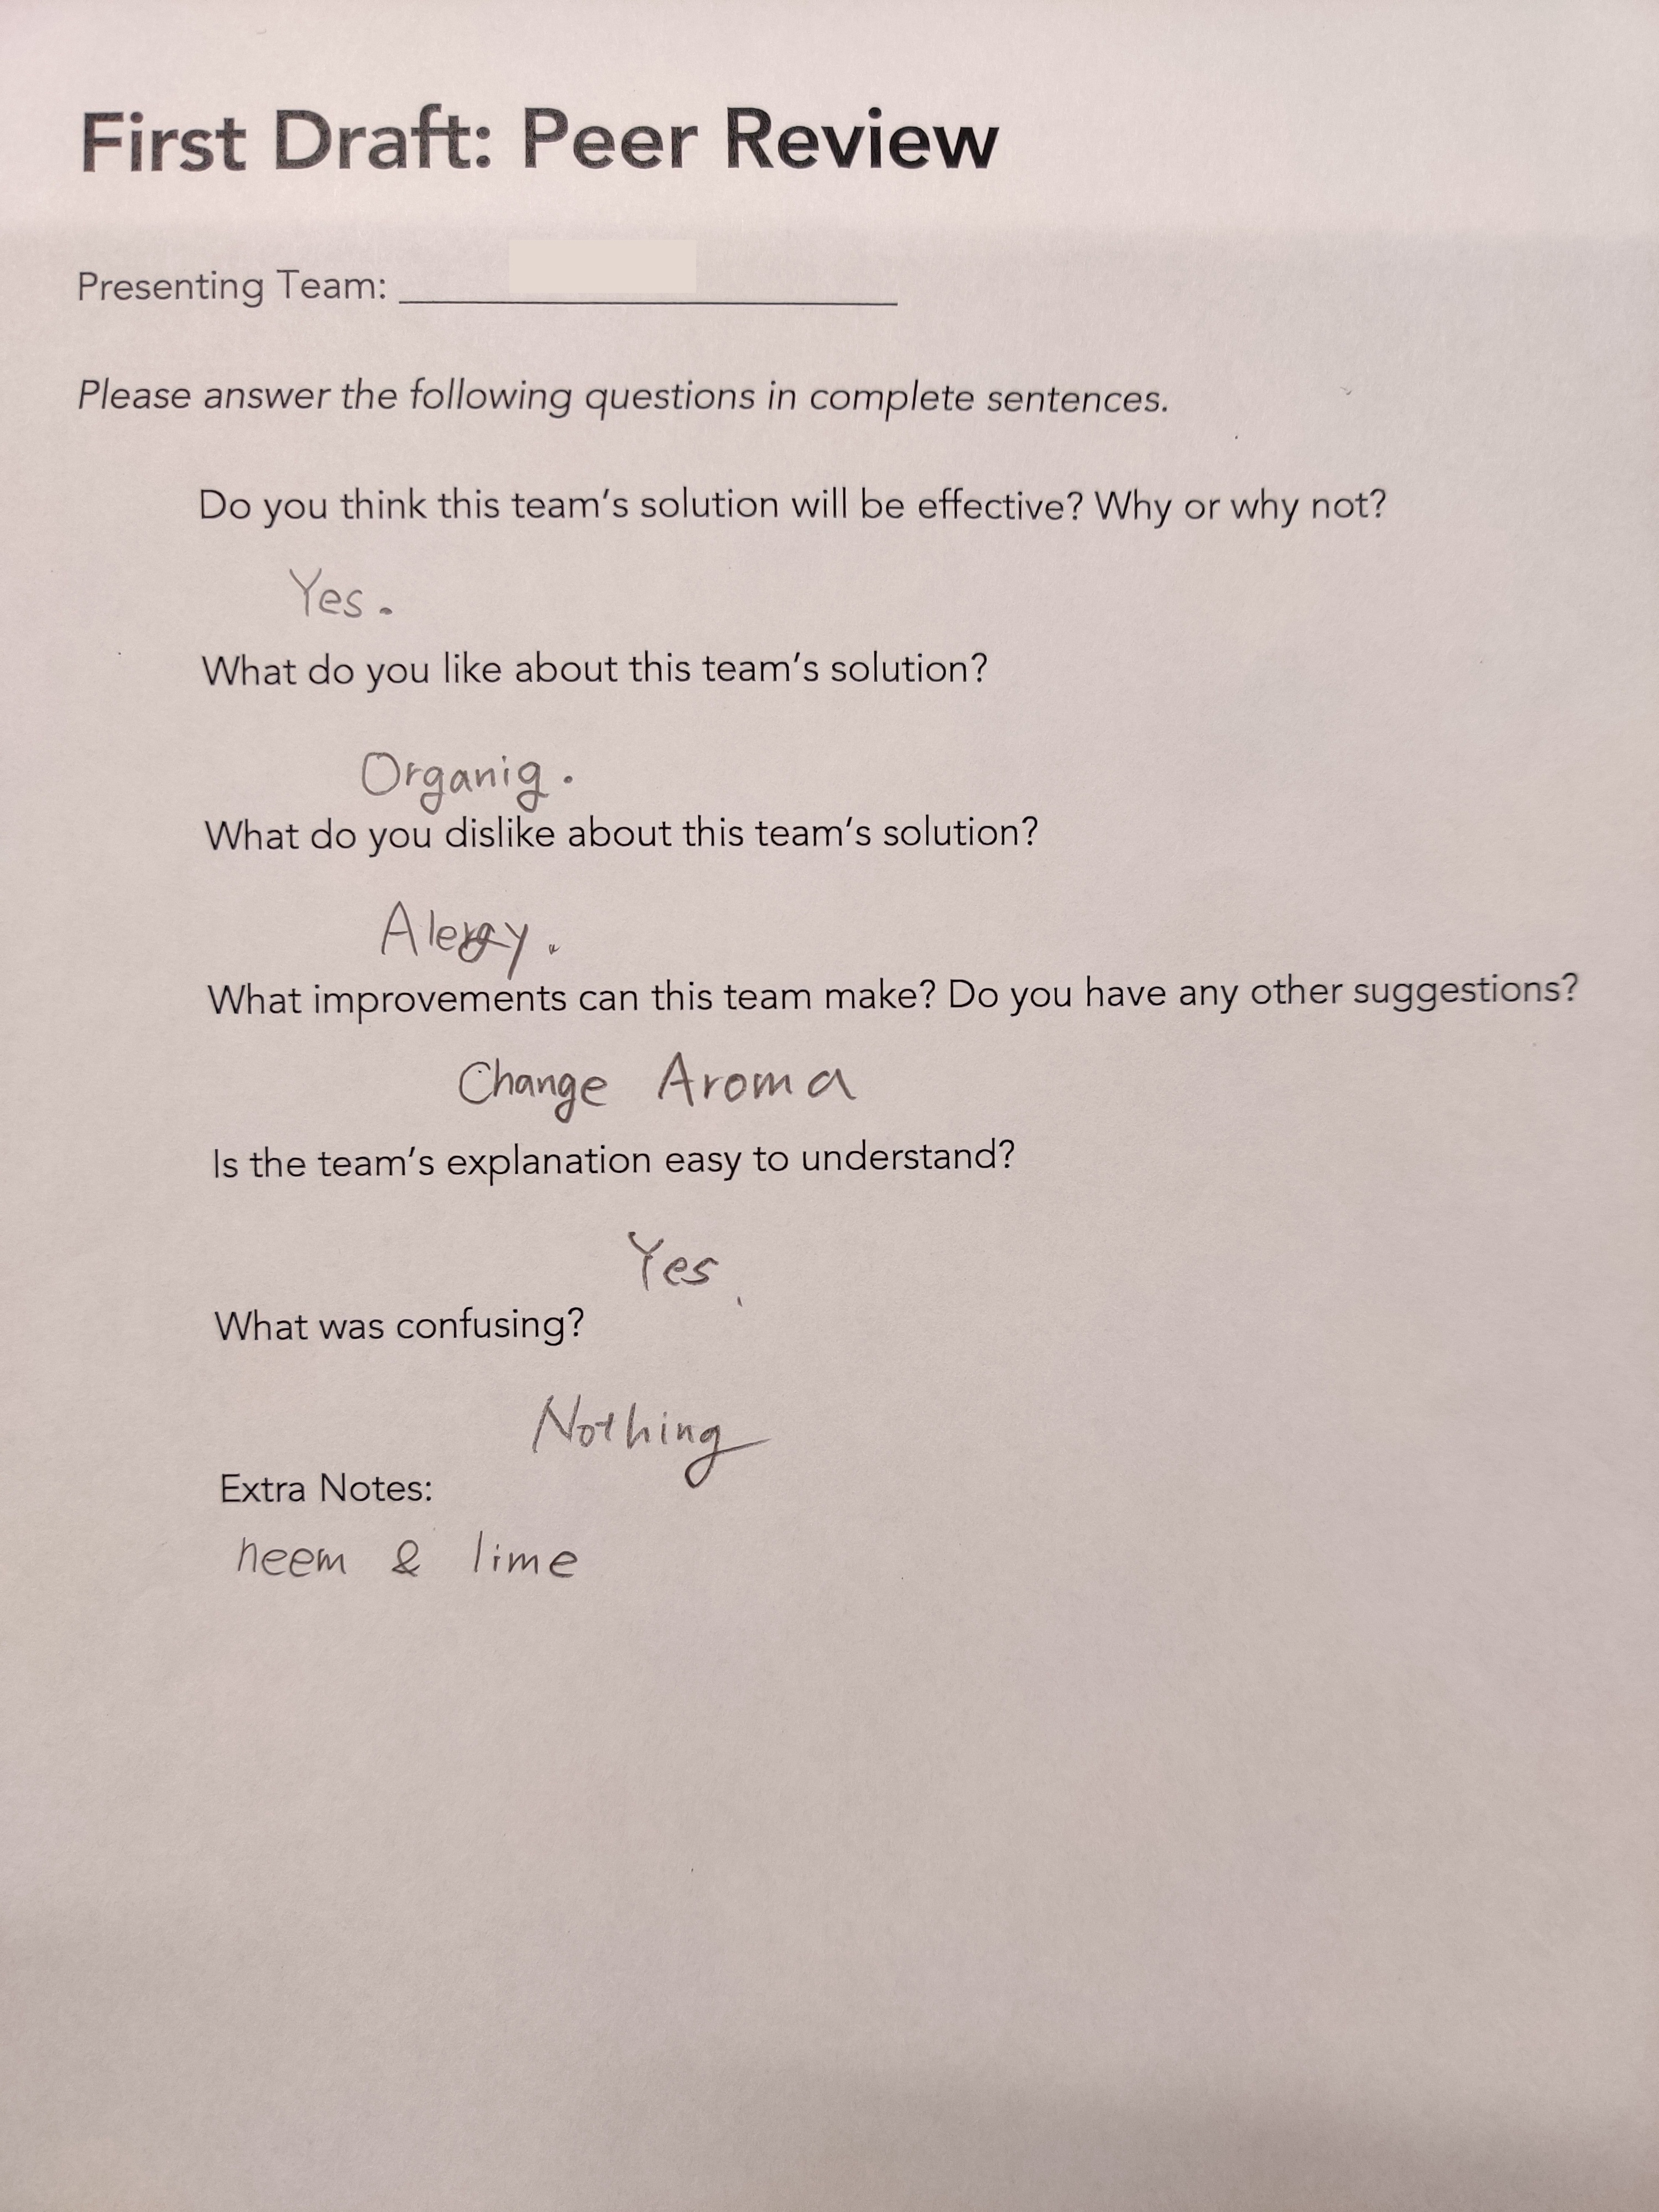 First Draft: Peer Review
Presenting Team:
Please answer the following questions in complete sentences.
Do you think this team's solution will be effective? Why or why not?
Yes.
What do you like about this team's solution?
Organig.
What do you dislike about this team's solution?
Alergy.
What improvements can this team make? Do you have any other suggestions?
Change Aroma
Is the team's explanation easy to understand?
Yes.
What was confusing?
Nothing
Extra Notes:
neem & lime